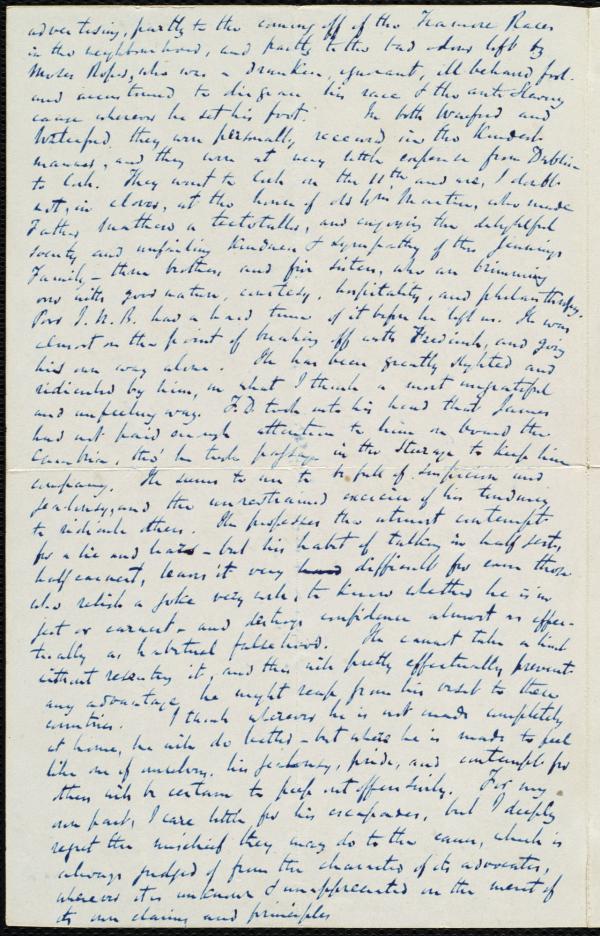 advertising, partly to the coming off of the Tramore Races
in the neighbourhood, and partly to the bad odour left by
Moses Roper, who was a drunken, ignorant, ill behaved fool
and accustomed to disgrace his race & the anti Slavery
cause wherever he set his foot. In both Wexford and
Waterford they were personally received in the kindest
manner, and they were at very little expense from Dublin
to Cork. They went to Cork on the 11th and are, I doubt
not, in clover, at the house of old Wm Martin, who made
Father Mathew a teetotaller, and enjoying the delightful
society and unfailing kindness & sympathy of the Jennings
Family – three brothers and five sisters, who are brimming
over with good nature, courtesy, hospitality, and philanthropy.
Poor J. N. B. had a hard time of it before he left us. He was
almost on the point of breaking off with Frederick, and going
his own way alone. He has been greatly slighted and
ridiculed by him, in what I think a most ungrateful
and unfeeling way. F. D took into his head that James
had not paid enough attention to him on board the
Cambria, tho' he took passage in the Steerage to keep him
company. He seems to me to be full of suspicion and
jealousy, and the unrestrained exercise of his tendency
to ridicule others. He professes the utmost contempt
for a lie and liars – but his habit of talking in half jest,
half earnest, leaves it very difficult for even those
who relish a joke very well, to know whether he is in
jest or earnest – and destroys confidence almost as effec-
tually as habitual falsehood. He cannot take a hint
without resenting it, and this will pretty effectually prevent
any advantage he might reap from his visit to these
countries. I think wherever he is not made completely
at home, he will do better – but where he is made to feel
like one of ourselves, his jealousy, pride, and contempt for
others will be certain to peep out offensively. For my
own part, I care little for his escapades, but I deeply
regret the mischief they may do to the cause, which is
always judged of from the character of its advocates,
wherever it is unknown & unappreciated on the merit of
its own claims and principles